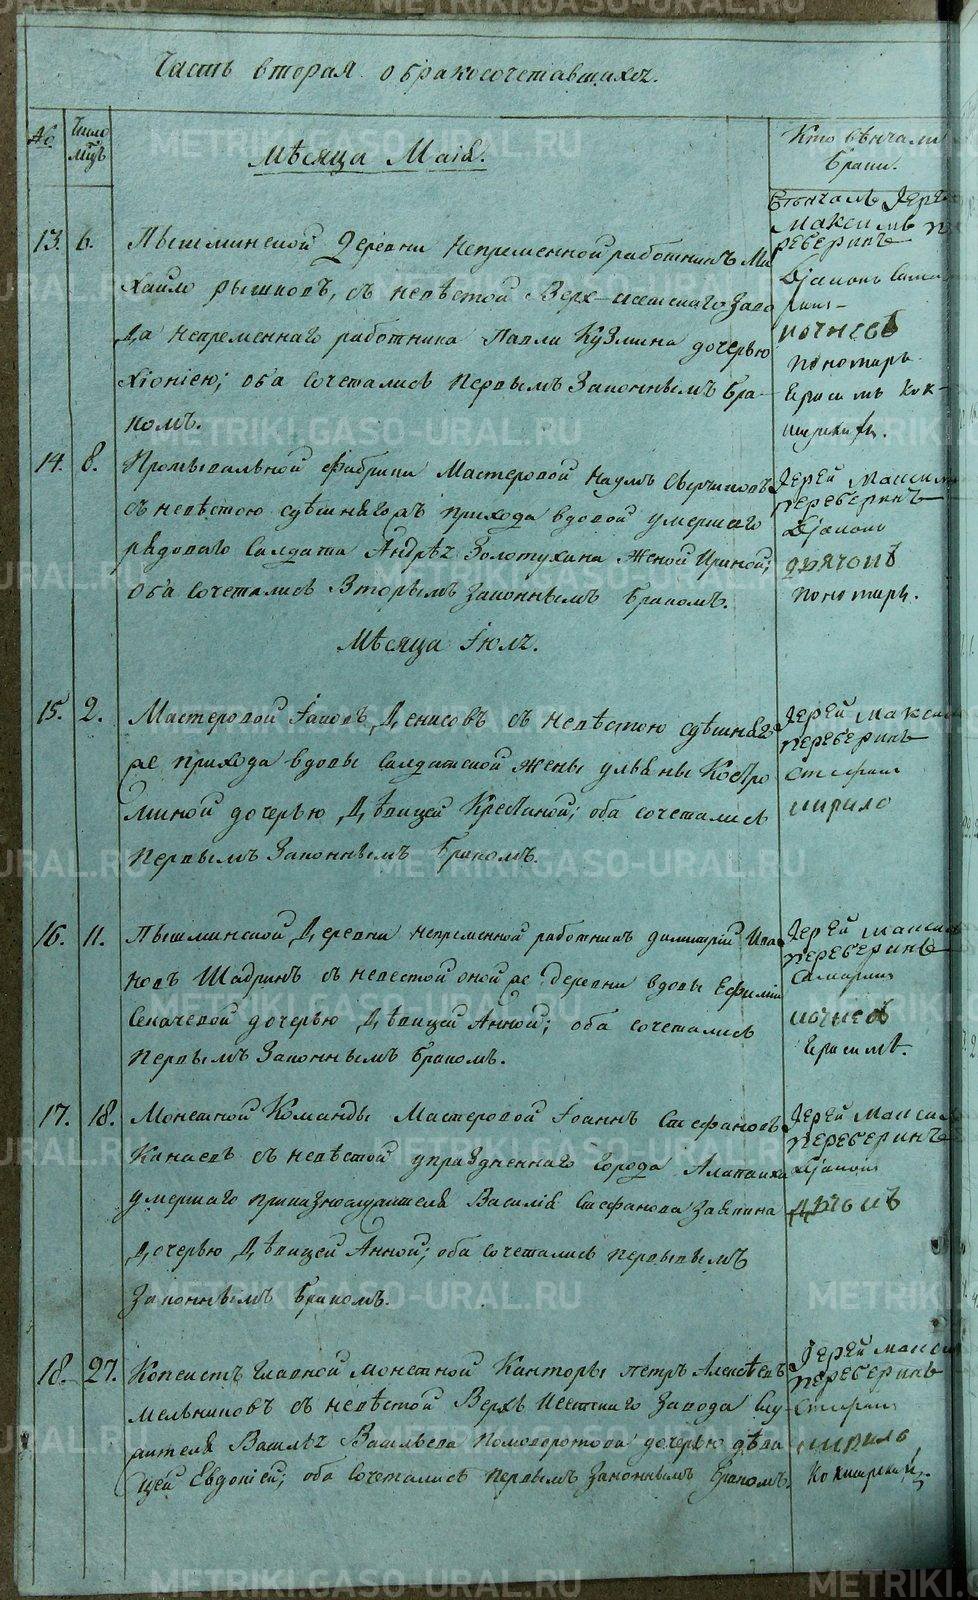 Часть вторая о бракосочетавшихся.
№ Число мцъ
Мѣсяца Маія.
Кто вѣнчалъ
браки.
13. 6. Пышминской Деревни Непременной работникъ Ми
хайло рышковъ, съ невѣстой Верх-исетскаго Заво
да непременнаго работника Павла Кузмина дочерью
Хіоніею; оба сочетались Первымъ Законнымъ бра-
комъ.
Вѣнчалъ Іерей
максимъ
Переберинъ
Діаконъ
кочневъ
пономарь
Герасимъ Кок
шарскій.
14. 8. Промывальной Фабрики Мастеровой Наумъ Сверчковъ
съ невѣстою сѣшняго жъ прихода вдовой умершаго
рядоваго Салдата Андрѣя Золотухина Женой Ириной;
Оба сочетались Вторымъ Законнымъ бракомъ.
Іерей Максимъ
Переберинъ
Діаконъ
дьячокъ
пономарь.
Мѣсяца Іюля.
15. 2. Мастеровой Іаковъ Денисовъ съ Невѣстою сѣшняго
же прихода вдовы Салдатской жены ульяны Костро
миной дочерью Дѣвицей Кристиной; оба сочетались
Первымъ Законнымъ бракомъ.
Іерей Максимъ
Переберинъ
Стефанъ
кирило
16. 11. Пышминской Деревни непременной работникъ димитрій Ива
новъ Шадринъ съ невестой оной же деревни вдовы Ефиміи
Сеначевой дочерью Дѣвицей Анной; оба сочетались
Первымъ Законнымъ бракомъ.
Іерей Максимъ
Переберинъ
кочневъ
Герасимъ.
17. 18. Монетной Команды Мастеровой Іоаннъ Стефановъ
Канаевъ съ невѣстой упраздненнаго Города Алапаихи
умершаго приказнослужителя Василія Стефанова Заякина
Дочерью Дѣвицей Анной; оба сочетались первымъ
Законнымъ бракомъ.
Іерей Максимъ
Переберинъ
Діаконъ
дьячокъ
18. 27. Копеистъ Главной монетной Канторы петръ Алексѣевъ
Мельниковъ съ невѣстой Верхъ Исетскаго Завода Слу-
жителя Василья Васильева дочерью дѣви
цей Евдокіей; оба сочетались первымъ Законнымъ бракомъ.
Іерей Максимъ
Переберинъ
Стефанъ
кирилъ
Кокшарскій.
METRIKI.GASO-URAL.RU